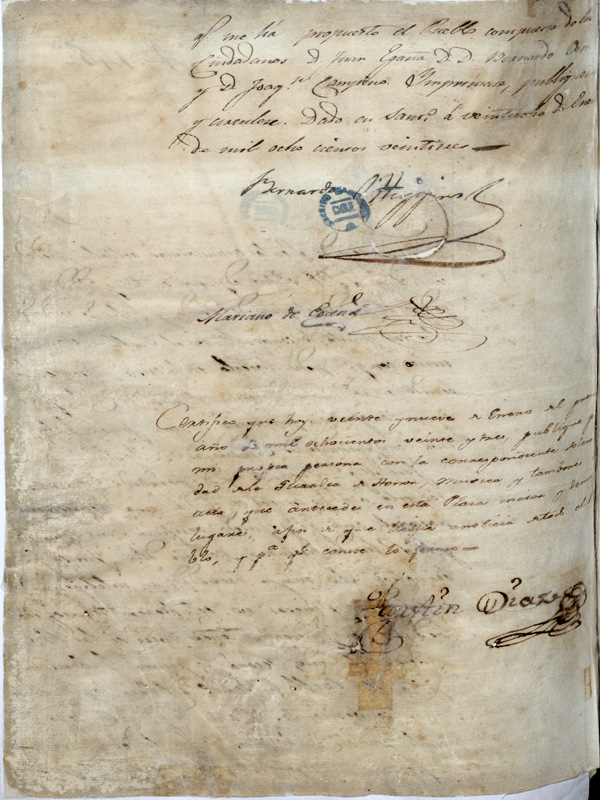 q.e me há propuesto el Pueblo compuesto de los
Ciudadanos d Juan Egaña D. D. Bernardo
y D Joaq.n Campino. Imprimase, publiquese
y circulese. Dado en Sant.o á veintiocho de Ene
de mil ocho cientos veintitres
Bernardo O'Higgins
ARCHIVO NACIONAL
CHILE
Mariano de Egaña
Certifico que hoy veinte y nueve de Enero del
año de mil ochocientos veinte y tres, publiqué p
mi propia persona con la correspondiente
dad de la Guardia de Honor, musica y tambores
acta, que antecede en esta Plaza mayor y dem
lugares, á fin de que noticia atodo el
blo, y p.a q.e conste lo firmo
Agustin Diaz